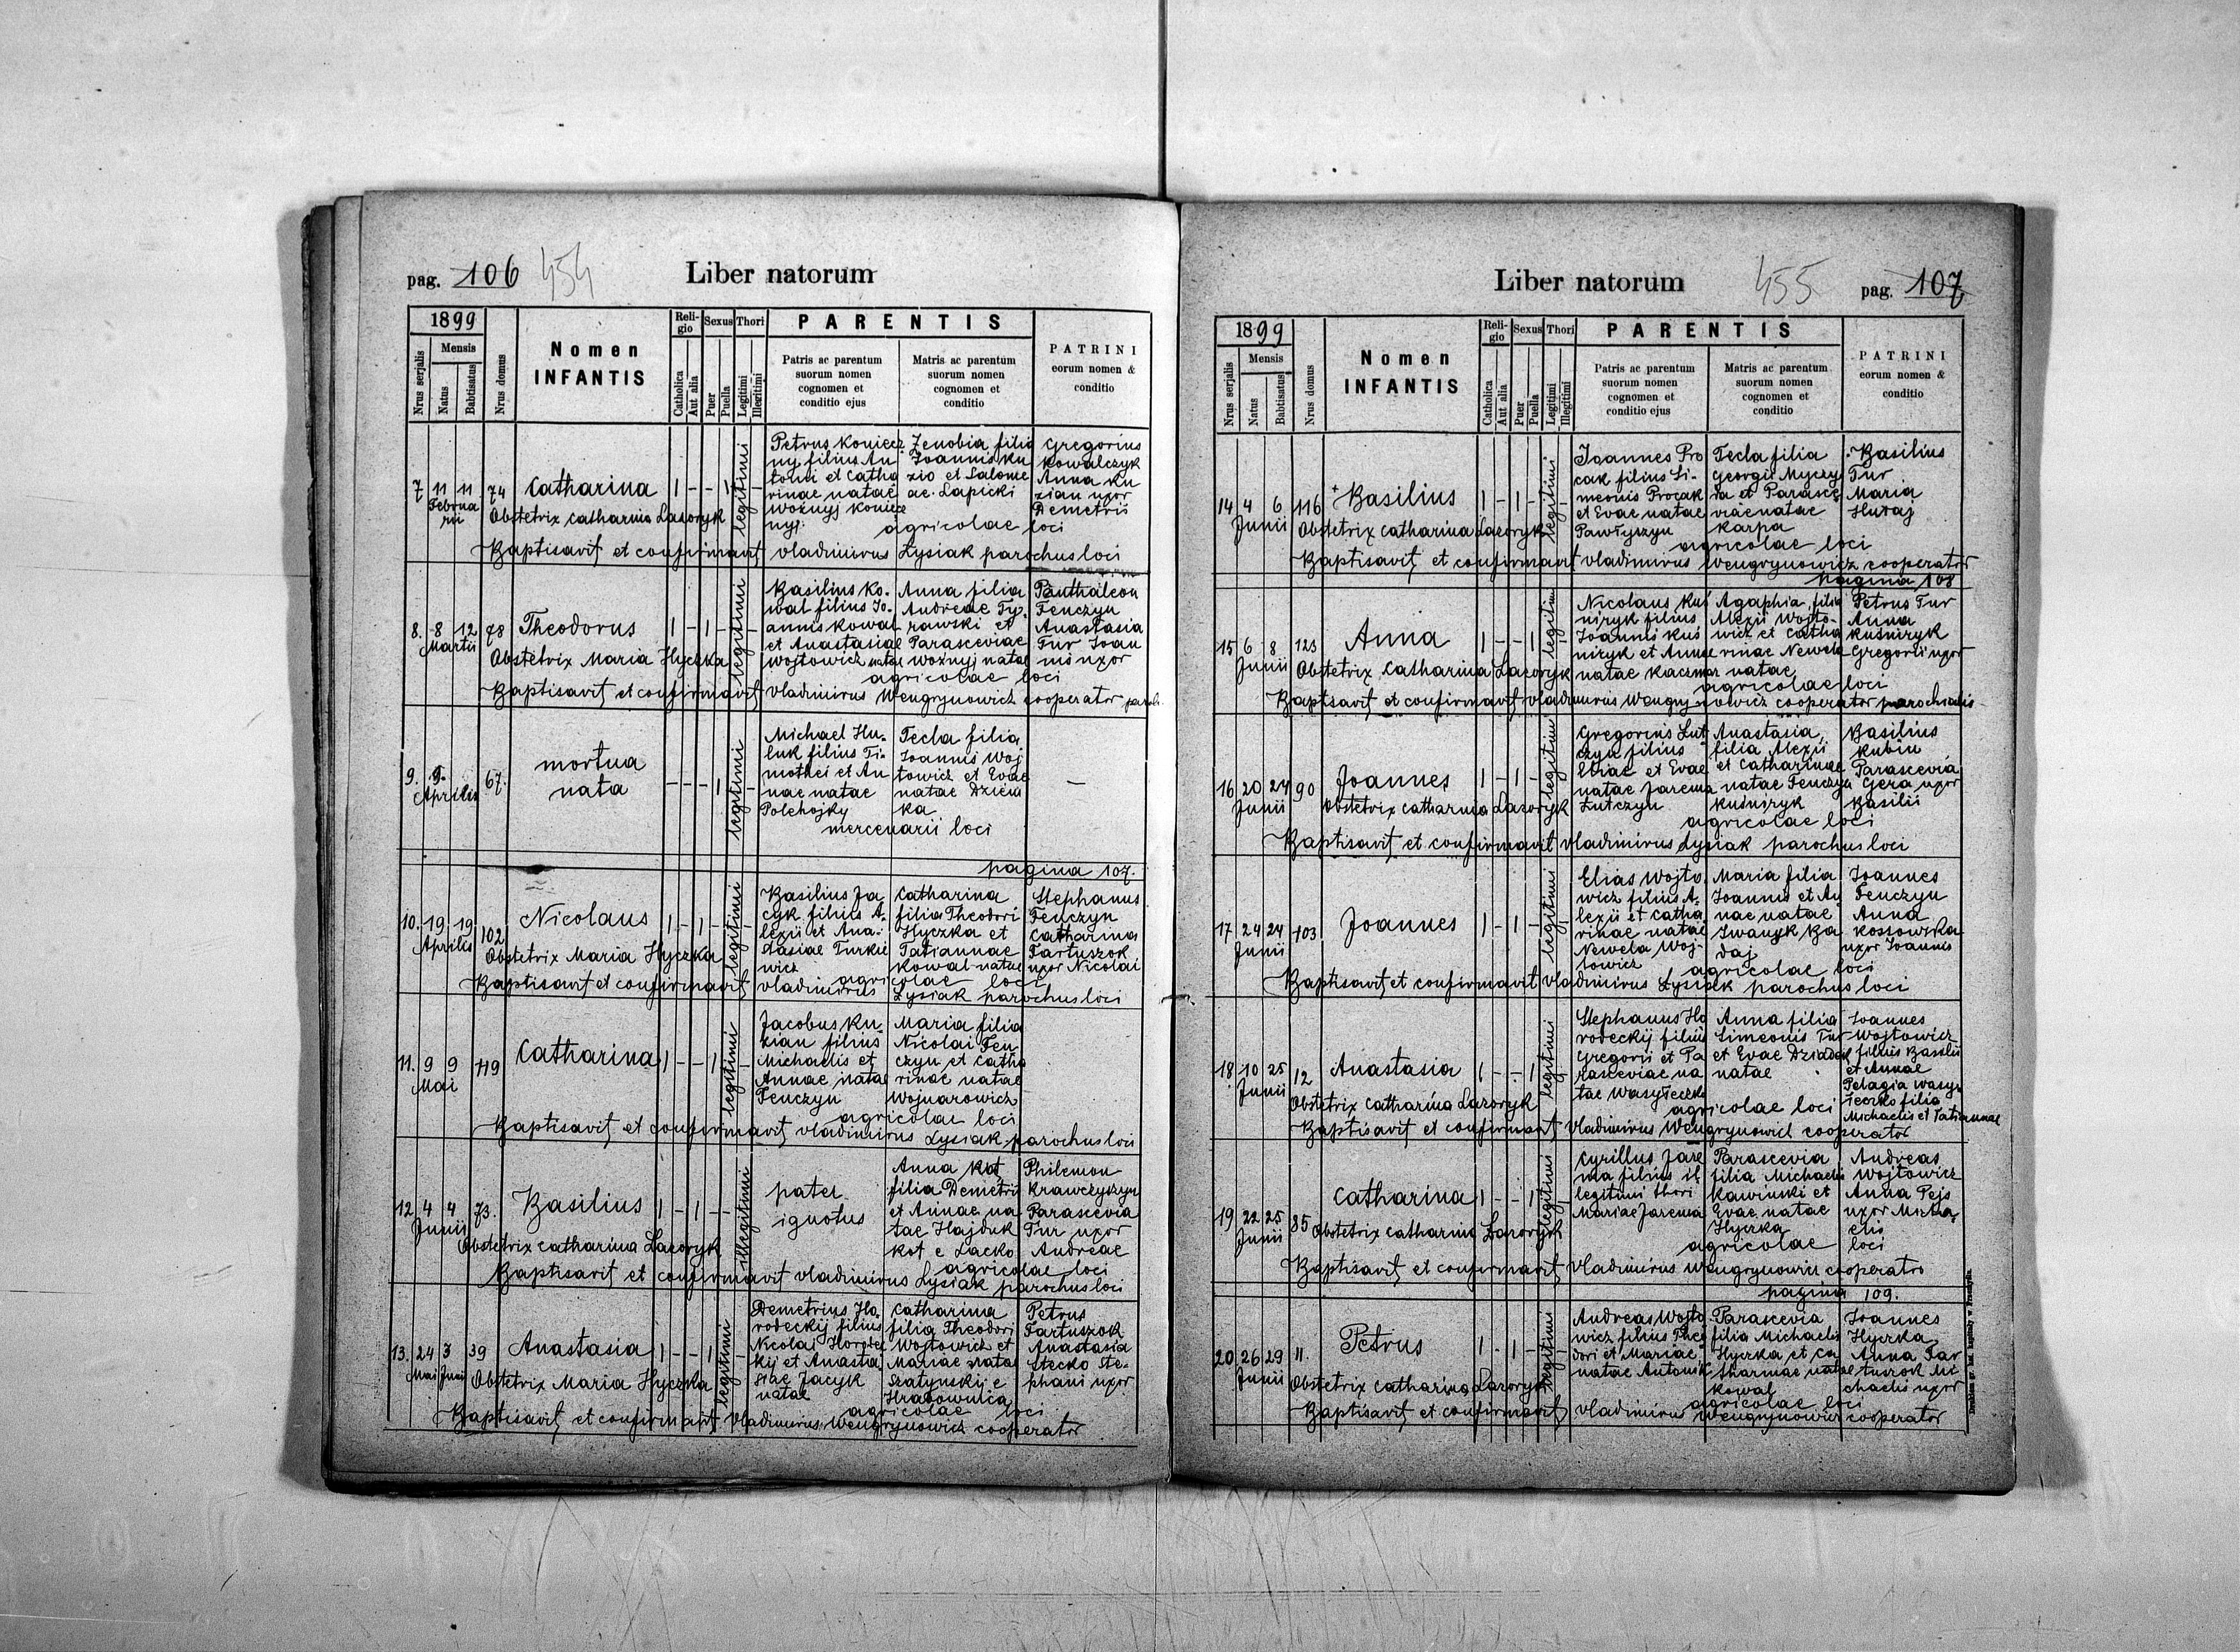 pag. 106 454
Liber natorum
1899
Nrus serjalis
Mensis
Natus
Babtisatus
Nrus domus
Nomen
INFANTIS
Reli-
gio
Catholica
Aut alia
Sexus
Puer
Puella
Thori
Legitimi
Illegitimi
PARENTIS
Patris ac parentum
suorum nomen
cognomen et
conditio ejus
Matris ac parentum
suorum nomen
cognomen et
conditio
PATRINI
eorum nomen &
conditio
7 11 11 74 Catharina 1 - - 1 legitimi -
Februa
rii
Obstetrix Catharina Lazoryk
Petrus Koniecz
nyj filius An
tonii et Catha
rinae natae
Woznyj Koniecz
nyj.
Zenobia filia
Joannis Ku
zio et Salome
ae Lapicki
Gregorius
Kowalczyk
Anna Ku
zian uxor
Demetrii
agricolae loci
Baptisavit et confirmavit Vladimirus Lysiak parochus loci
8. 8 12 78 Theodorus 1 - 1 - legitimi -
Martii
Obstetrix Maria Hyczka
Basilius Ko-
wal filius Jo-
annis Kowal
et Anastasiae
Wojtowicz natae
Anna filia
Andreae Ty-
rawski et
Parasceviae
Woznyj natae
Panthaleon
Fenczyn
Anastasia
Tur Joan
nis uxor
agricolae loci
Baptisavit et confirmavit Vladimirus Wengrynowicz cooperator paroch.
9. 9. 67. mortua
nata - - - 1 legitimi -
Aprilis
Michael Hu-
luk filius Ti-
mothei et An
nae natae
Polchojky
Tecla filia
Joannis Woj
towicz et Evae
natae Dzieni
ka
-
mercenarii loci
pagina 107.
10. 19 19 102 Nicolaus 1 - 1 - legitimi -
Aprilis
Obstetrix Maria Hyczka
Basilius Ja
cyk filius A-
lexii et Ana-
stasiae Turkie
wicz
Catharina
filia Theodori
Hyczka et
Tatiannae
Kowal natae
Stephanus
Fenczyn
Catharina
Tartuszok
uxor Nicolai
agricolae loci
Baptisavit et confirmavit Vladimirus Lysiak parochus loci
11. 9 9 119 Catharina 1 - - 1 legitimi -
Mai
Jacobus Ku-
zian filius
Michaelis et
Annae natae
Fenczyn
Maria filia
Nicolai Fen
czyn et Catha
rinae natae
Wojnarowicz
agricolae loci
Baptisavit et confirmavit Vladimirus Lysiak parochus loci
12. 4 4 73. Basilius 1 - 1 - illegitimi
Junii
Obstetrix Catharina Lazoryk
pater
ignotus
Anna Kot
filia Demetri
et Annae na
tae Hajduk
Kot e Lacko
Philemon
Krawczyszyn
Parascevia
Tur uxor
Andreae
agricolae loci
Baptisavit et confirmavit Vladimirus Lysiak parochus loci
13. 24 3 39 Anastasia 1 - - 1 legitimi -
Mai Junii
Obstetrix Maria Hyczka
Demetrius Ho
rodeckij filius
Nicolai Horodec
kij et Anasta
siae Jacyk
natae
Catharina
filia Theodori
Wojtowicz et
Mariae natae
Szatynskij e
Hrabownica
Petrus
Tartuszok
Anastasia
Stecko Ste-
phani uxor
agricolae loci
Baptisavit et confirmavit Vladimirus Wengrynowicz cooperator
Liber natorum
455 pag. 107
1899
Nrus serjalis
Mensis
Natus
Babtisatus
Nrus domus
Nomen
INFANTIS
Reli-
gio
Catholica
Aut alia
Sexus
Puer
Puella
Thori
Legitimi
Illegitimi
PARENTIS
Patris ac parentum
suorum nomen
cognomen et
conditio ejus
Matris ac parentum
suorum nomen
cognomen et
conditio
PATRINI
eorum nomen &
conditio
14 4 6 116 Basilius 1 - 1 - legitimi -
Junii
Obstetrix Catharina Lazoryk
Joannes Pro
cak filius Si-
meonis Procak
et Evae natae
Pawlyszyn
Tecla filia
Georgii Myczy
da et Parasce
viae natae
Karpa
Basilius
Tur
Maria
Hutaj
agricolae loci
Baptisavit et confirmavit Vladimirus Wengrynowicz cooperator
pagina 108
15 6 8 123 Anna 1 - - 1 legitimi
Junii
Obstetrix Catharina Lazoryk
Nicolaus Kus
niryk filius
Joannis Kus
niryk et Annae
natae Kaczmar
Agaphia filia
Alexii Wojto-
wicz et Catha
rinae Newela
natae
Petrus Tur
Anna
Kusniryk
Gregorii uxor
agricolae loci
Baptisavit et confirmavit Vladimirus Wengrynowicz cooperator parochialis
16 20 24 90 Joannes 1 - 1 - legitimi
Junii
Obstetrix Catharina Lazoryk
Gregorius Lut
czyn filius
Eliae et Evae
natae Jarema
Lutczyn
Anastasia,
filia Alexii
et Catharinae
natae Fenczyn
Kusniryk
Basilius
Kubin
Parascevia
Gera uxor
Basilii
agricolae loci
Baptisavit et confirmavit Vladimirus Lysiak parochus loci
17 24 24 103 Joannes 1 - 1 - legitimi
Junii
Elias Wojto
wicz filius A-
lexii et Catha
rinae natae
Newela Woj-
towicz
Maria filia
Joannis et An
nae natae
Iwanyk Ba
daj
Joannes
Fenczyn
Anna
Kossowska
uxor Joannis
agricolae loci
Baptisavit et confirmavit Vladimirus Lysiak parochus loci
18 10 25 12 Anastasia 1 - - 1 legitimi
Junii
Obstetrix Catharina Lazoryk
Stephanus Ho
rodeckij filius
Gregorii et Pa
rasceviae na
tae Wasyleczko
Anna filia
Simeonis Tur
et Evae Dziadyk
natae
Joannes
Wojtowicz
filius Basilii
et Annae
Pelagia Wasy-
leczko filia
Michaelis et Tatiannae
agricolae loci
Baptisavit et confirmavit Vladimirus Wengrynowicz cooperator
19 22 25 85 Catharina 1 - - 1 legitimi
Junii
Obstetrix Catharina Lazoryk
Cyrillus Jare
ma filius il
legitimi thori
Mariae Jarema
Parascevia
filia Michaelis
Kawinski et
Evae natae
Hyczka
Andreas
Wojtowicz
Anna Pejs
uxor Micha
elis
agricolae loci
Baptisavit et confirmavit Vladimirus Wengrynowicz cooperator
pagina 109.
20 26 29 11. Petrus 1 - 1 - legitimi
Junii
Obstetrix Catharina Lazoryk
Andreas Wojto
wicz filius Theo
dori et Mariae
natae Antonik
Parascevia
filia Michaelis
Hyczka et Ca
tharinae natae
Kowal
Joannes
Hyczka
Anna Tar
tuszok Mi
chaelis uxor
agricolae loci
Baptisavit et confirmavit Vladimirus Wengrynowicz cooperator